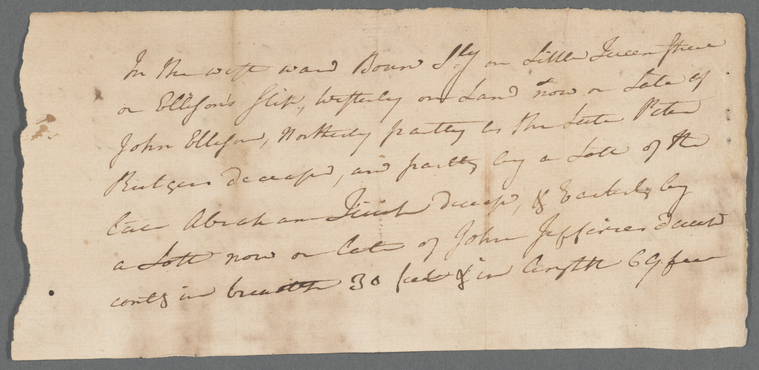 In the west ward Boun Sly on Little Queen Stree
or Ellison's Slip, Westerly on Land now or Late of
John Ellison, Northerly partly by the Late Peter
Rutgers deceasd, and partly by a Lott of the
late Abraham deceasd, & Easterly by
a Lott now or late of John Jefferies deceasd
contg in breadth 30 feet & in length 69 feet